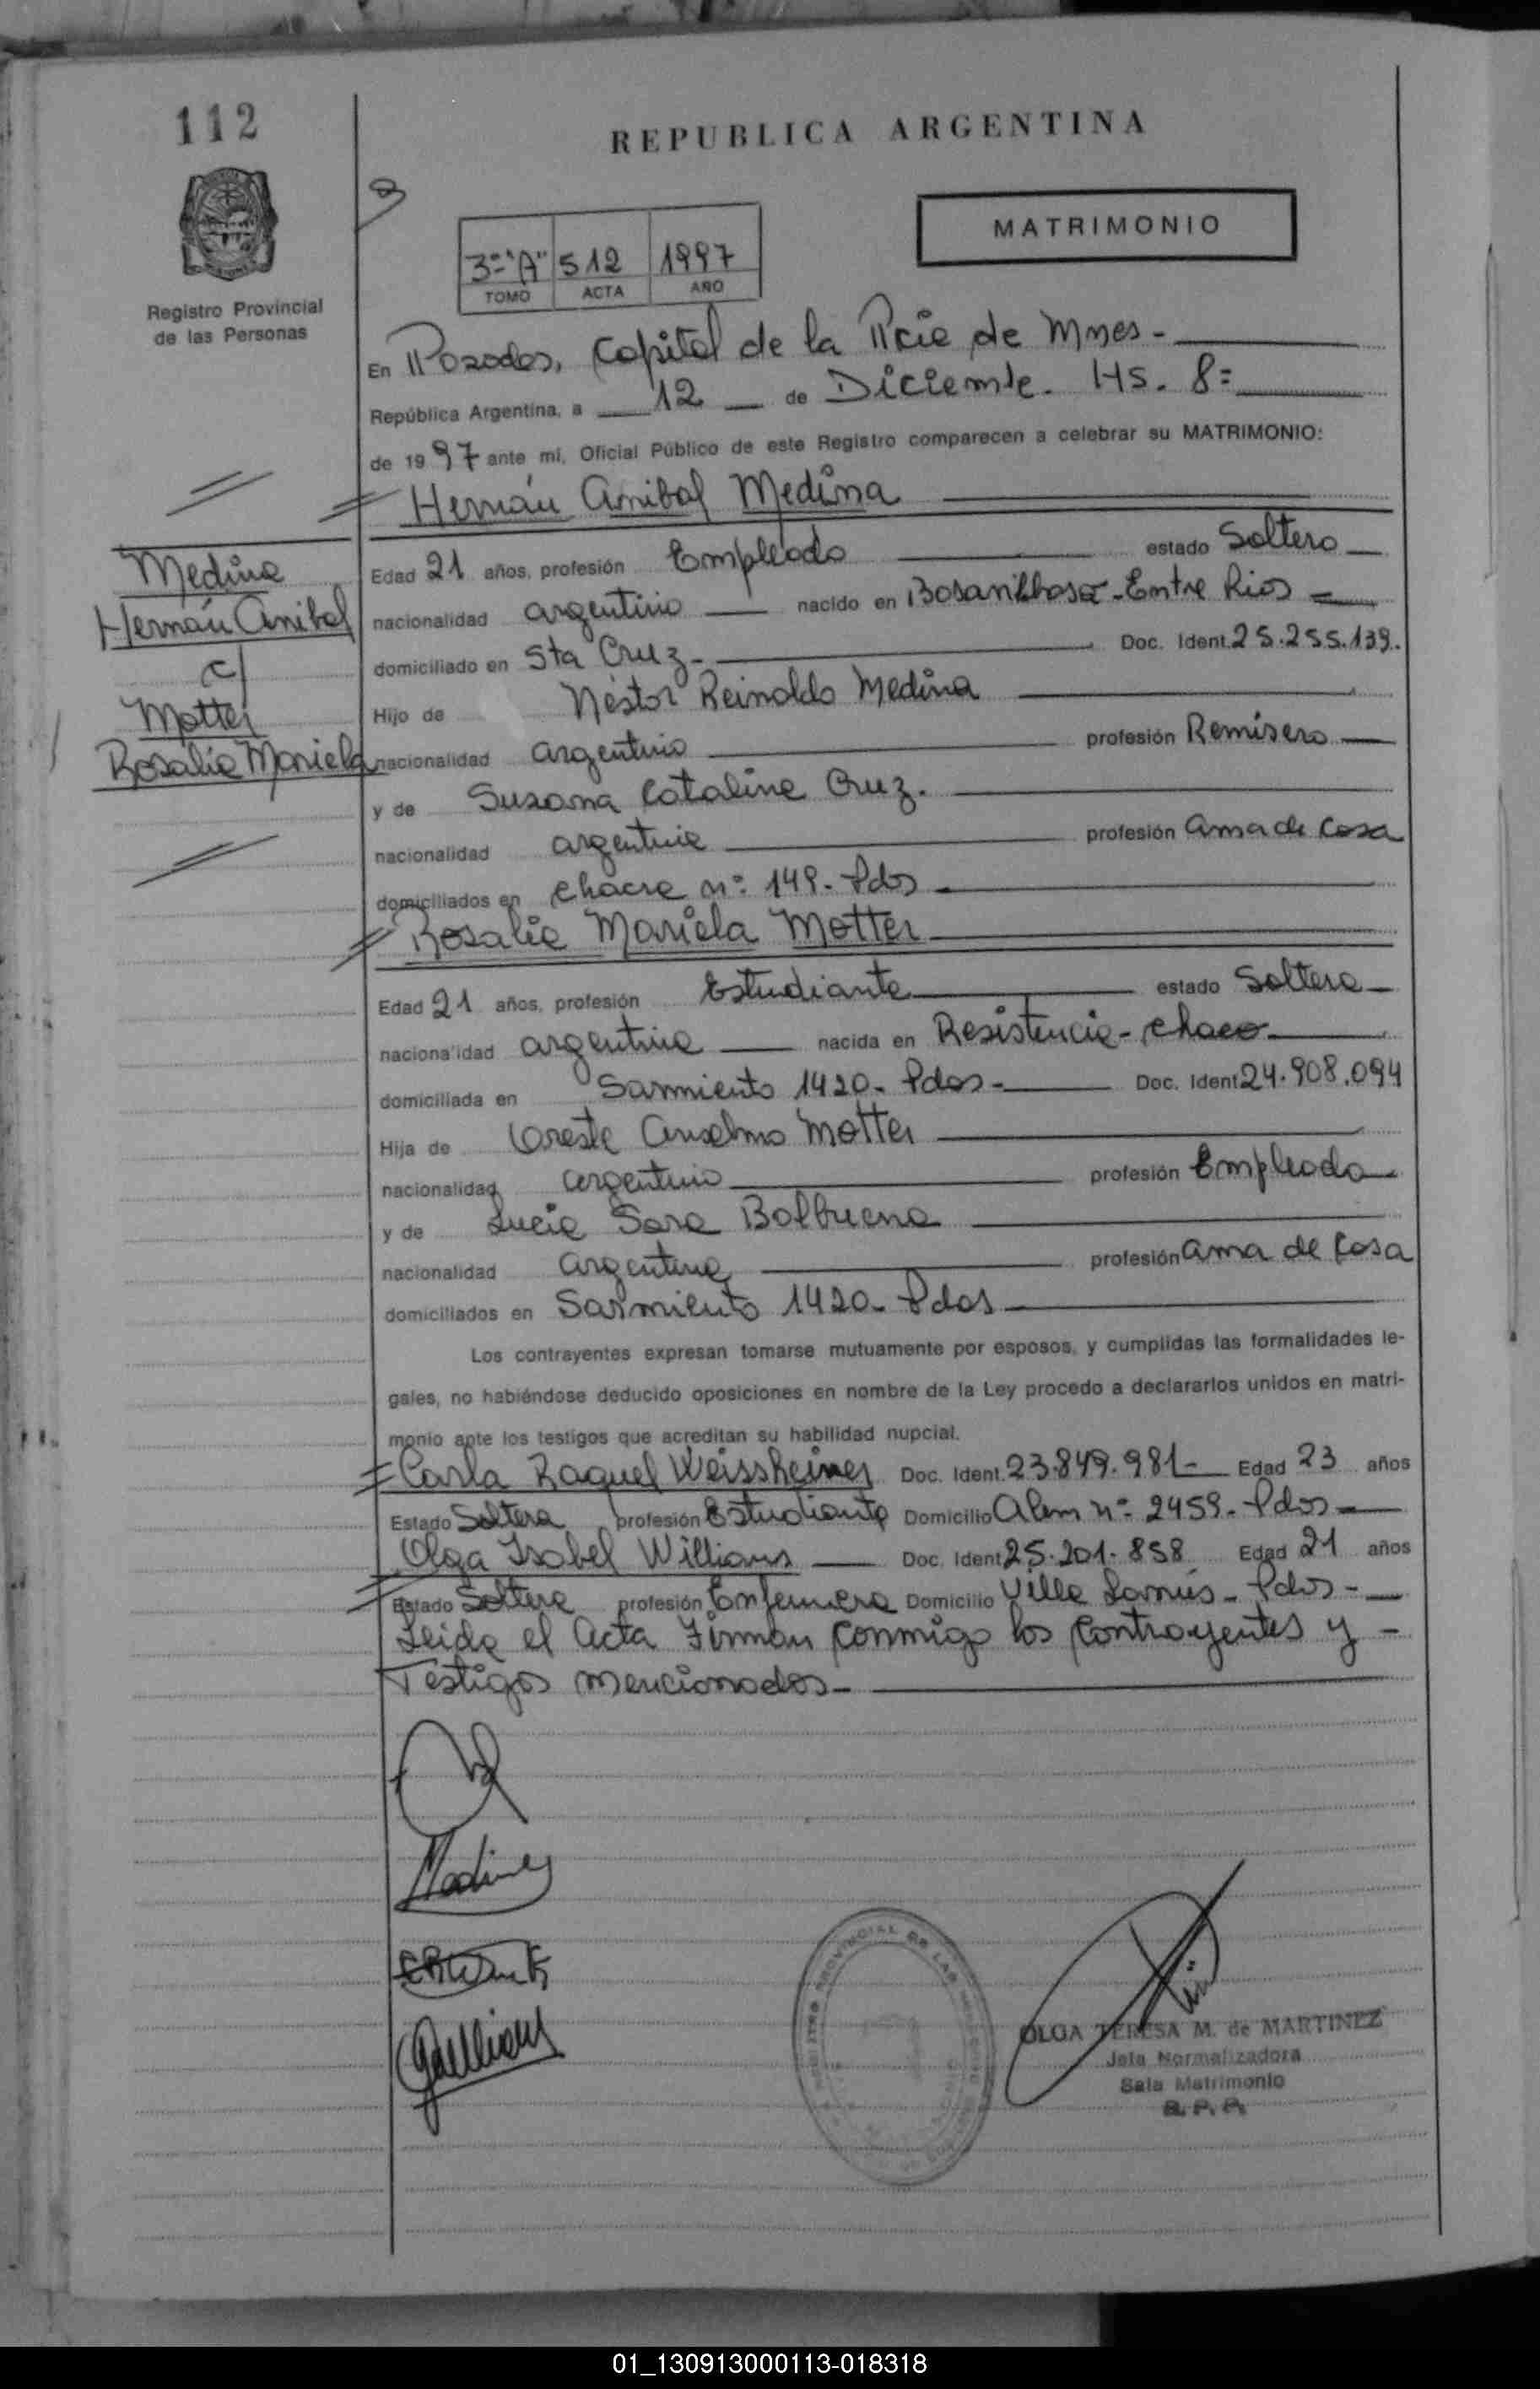 112
REPUBLICA ARGENTINA
MATRIMONIO
3º "A" 512 1997
TOMO ACTA AÑO
Registro Provincial
de las Personas
En Posadas, Capital de la Pcia de Mnes -
República Argentina, a 12 de Diciembre. Hs. 8=
de 1997 ante mí, Oficial Público de este Registro comparecen a celebrar su MATRIMONIO:
Hernán Anibal Medina
Medina
Hernán Anibal
c/
Motter
Rosalia Mariela
Edad 21 años, profesión Empleado estado Soltero
nacionalidad argentino nacido en - Entre Rios
domiciliado en Sta Cruz - Doc. Ident. 25.255.139.
Hijo de Néstor Reinaldo Medina
nacionalidad argentino profesión Remisero
y de Susana Catalina Cruz.
nacionalidad argentina profesión ama de casa
domiciliados en chacra nº 149 - Pdas
Rosalia Mariela Motter
Edad 21 años, profesión Estudiante estado Soltera
nacionalidad argentina nacida en Resistencia - Chaco
domiciliada en Sarmiento 1420 - Pdas - Doc. Ident 24.908.094
Hija de Oreste Anselmo Motter
nacionalidad argentino profesión Empleado
y de Lucia Sara Balbuena
nacionalidad argentina profesión ama de casa
domiciliados en Sarmiento 1420 - Pdas
Los contrayentes expresan tomarse mutuamente por esposos, y cumplidas las formalidades le-
gales, no habiéndose deducido oposiciones en nombre de la Ley procedo a declararlos unidos en matri-
monio ante los testigos que acreditan su habilidad nupcial.
Carla Raquel Weissheimer Doc. Ident. 23.849.981 - Edad 23 años
Estado Soltera profesión Estudiante Domicilio Alem nº 2459 - Pdas -
Olga Isabel Willians Doc. Ident 25.201.858 Edad 21 años
Estado Soltera profesión Enfermera Domicilio Villa Lanús - Pdas -
Leida el Acta Firman conmigo los contrayentes y -
Testigos mencionados -
Medina
OLGA TERESA M. de MARTINEZ
Jefa Normalizadora
Sala Matrimonio
R. P. P.
01_130913000113-018318